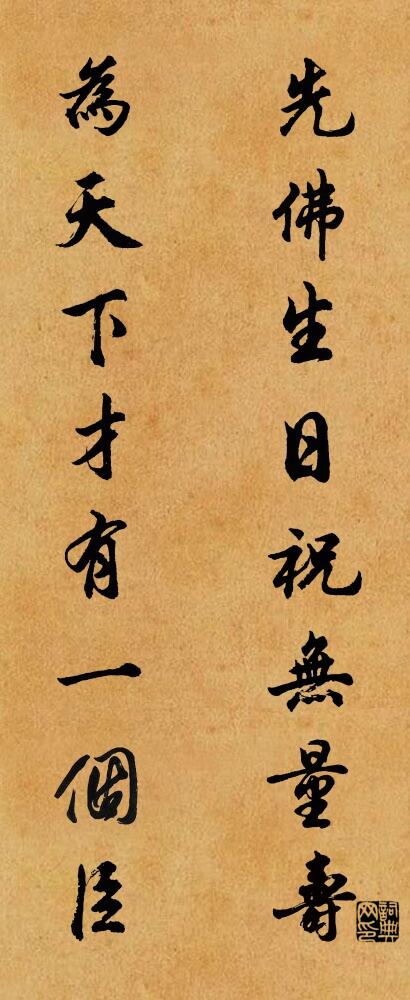 先佛生日祝無量壽
為天下才有一個臣
詞典網印